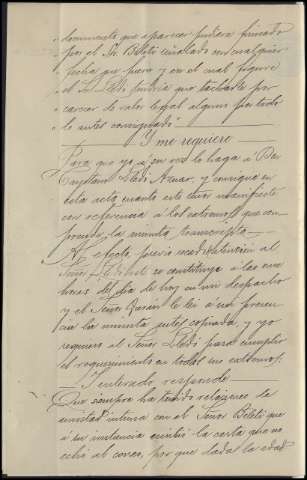 " documento que aparecer pudiera firmado
" por el Sr. Beleti señalado en cualquier
" fecha que fuera y en el cual figure
" el Sr. Lledó tendría que tacharle por
" carecer de valor legal alguno por todo
" lo antes consignado".
Y me requiere
Para que yo a su vez lo haga a Don
Cayetano Lledó Aznar, y consigne en
esta acta cuanto este Señor manifieste
con referencia a los extremos que com-
prende la minuta transcripta.
Al efecto, previa mi citación al
Señor Lledó se constituye a las once
horas del día de hoy en mi despacho
y el Señor leí a su presen-
cia la minuta antes copiada, y yo
requiero al Señor Lledó para cumplir
el requerimiento en todos sus extremos.
Y enterado, responde
Que siempre ha tenido relaciones de
amistad íntima con el Señor Beleti que
a su instancia escribió la carta que no
echó al correo, por que dada la edad